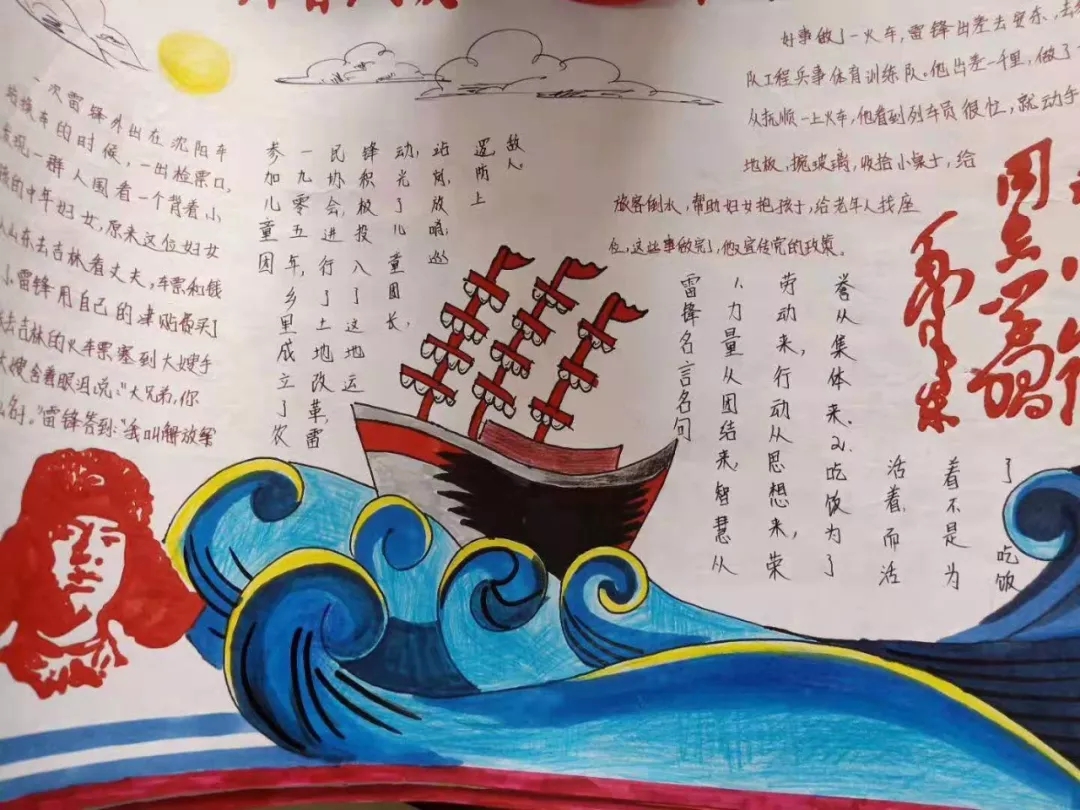 一次雷锋外出在沈阳车
站换车的时候，一出检票口，
发现一群人围看一个背着小
孩的中年妇女，原来这位妇女
从山东去吉林看丈夫，车票和钱
小雷锋用自己的津贴费买了
去吉林的火车票塞到大嫂手
大嫂含着眼泪说："大兄弟，你
么名"。"雷锋答到："我叫解放军
敌人。
逻防上
站岗，放哨，巡
动，光了儿童团长，
锋积极投入了这地运
民协会，进行了土地改革，雷
一九零五年，乡里成立了农
参加儿童团
好事做了一火车，雷锋出差去安东，去
队工程兵事体育训练队。他出差一千里，做了
从抚顺一上火车，他看到列车员很忙，就动手
地板，擦玻璃，收拾小桌士，给
旅客倒水，帮助妇女抱孩子，给老年人找座
位，这些事做完了，他又宣传党的政策。
雷锋名言名句
1、力量从团结来，智慧从
劳动来，行动从思想来，荣
誉从集体来。2.吃饭为了
活着，而活
着不是为
了吃饭
同志学习
毛泽东